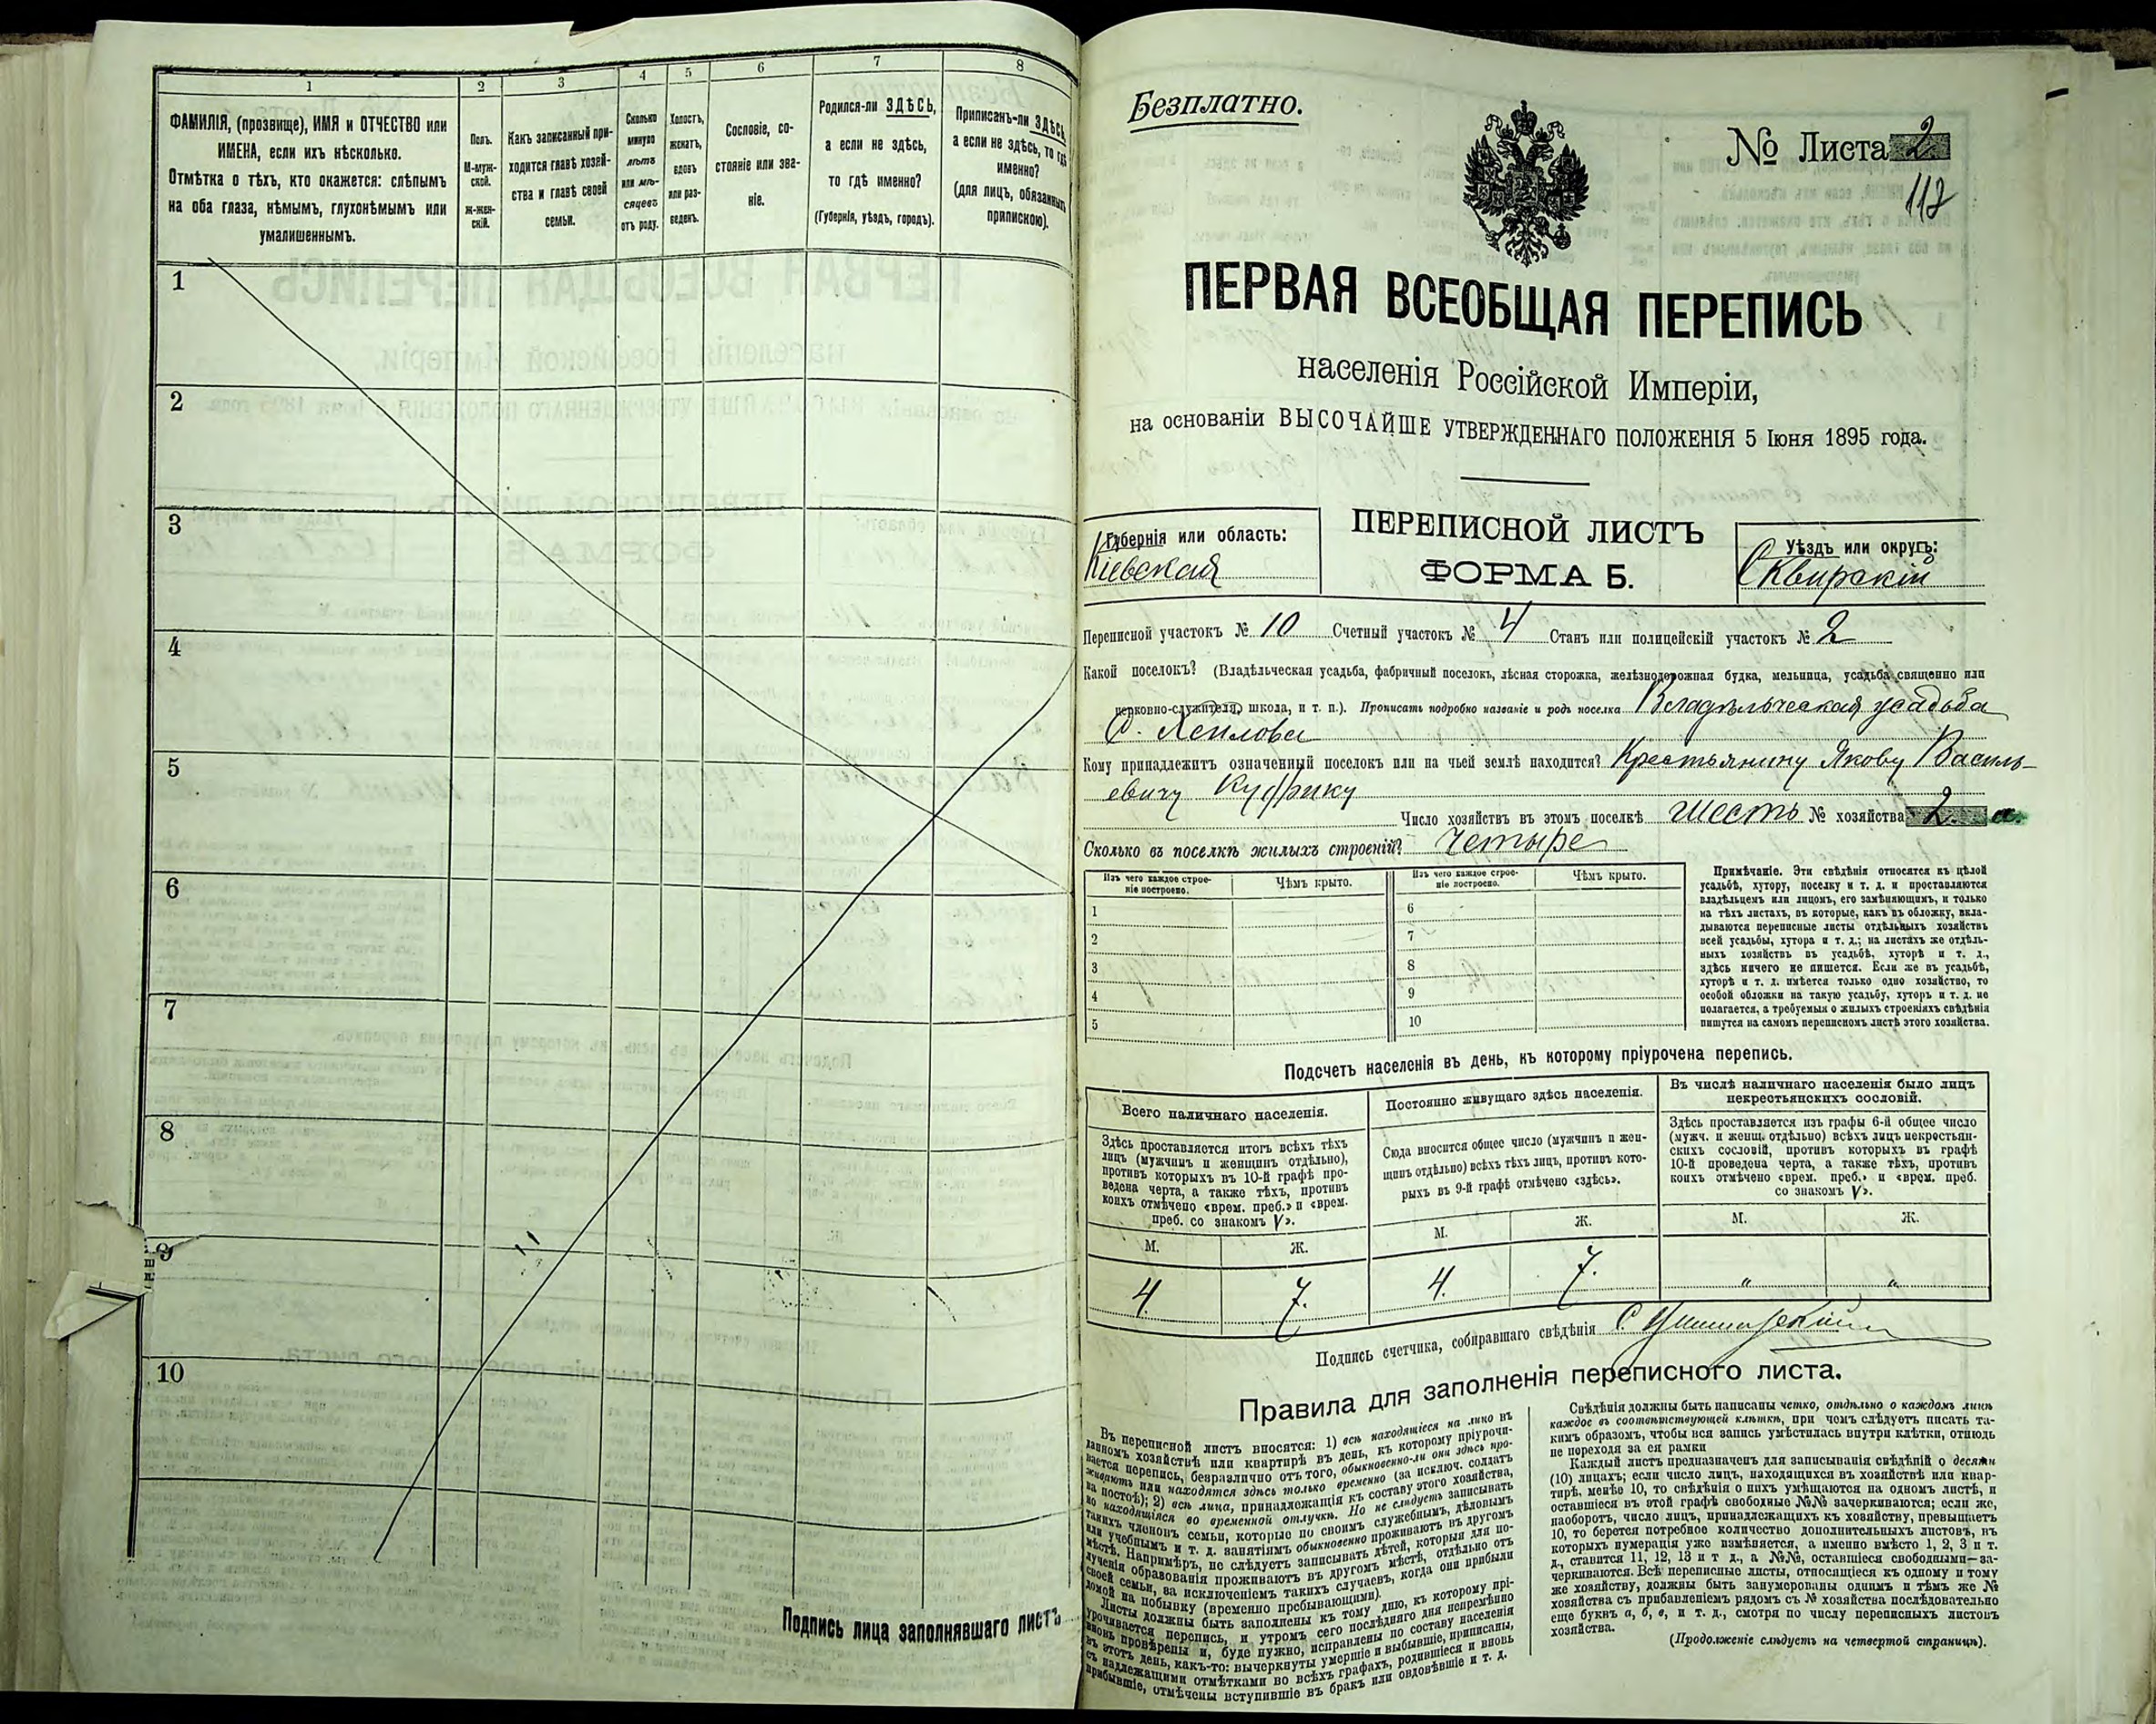 1
2
3
4
5
6
7
8
ФАМИЛІЯ, (прозвище), ИМЯ и ОТЧЕСТВО или
ИМЕНА, если ихъ нѣсколько.
Отмѣтка о тѣхъ, кто окажется: слѣпымъ
на оба глаза, нѣмымъ, глухонѣмымъ или
умалишеннымъ.
Полъ.
М-муж-
ской.
Ж-жен-
скій.
Какъ записанный при-
ходится главѣ хозяй-
ства и главѣ своей
семьи.
Сколько
минуло
лѣтъ
или мѣ-
сяцевъ
отъ роду.
Холостъ,
женатъ,
вдовъ
или раз-
веденъ.
Сословіе, со-
стояніе или зва-
ніе.
Родился-ли ЗДѢСЬ,
а если не здѣсь,
то гдѣ именно?
(Губернія, уѣздъ, городъ).
Приписанъ-ли ЗДѢСЬ,
а если не здѣсь, то гдѣ
именно?
(для лицъ, обязанныхъ
припискою).
1
2
3
4
5
6
7
8
9
10
Подпись лица заполнявшаго листъ
Безплатно.
№ Листа 2
112
ПЕРВАЯ ВСЕОБЩАЯ ПЕРЕПИСЬ
населенія Россійской Имперіи,
на основаніи ВЫСОЧАЙШЕ УТВЕРЖДЕННАГО ПОЛОЖЕНІЯ 5 Іюня 1895 года.
Губернія или область:
Кіевская
ПЕРЕПИСНОЙ ЛИСТЪ
ФОРМА Б.
Уѣздъ или округъ:
Сквирскій
Переписной участокъ № 10 Счетный участокъ № 4 Станъ или полицейскій участокъ № 2
Какой поселокъ? (Владѣльческая усадьба, фабричный поселокъ, лѣсная сторожка, желѣзнодорожная будка, мельница, усадьба священно или
церковно-служителя, школа, и т. п.). Прописать подробно названіе и родъ поселка Владѣльческая усадьба
Кому принадлежитъ означенный поселокъ или на чьей землѣ находится? Крестьянину Якову Василь-
евичу
Число хозяйствъ въ этомъ поселкѣ шесть № хозяйства 2 а.
Сколько въ поселкѣ жилыхъ строеній? Четыре
Изъ чего каждое строе-
ніе построено.
Чѣмъ крыто.
Изъ чего каждое строе-
ніе построено.
Чѣмъ крыто.
1
2
3
4
5
6
7
8
9
10
Примѣчаніе. Эти свѣдѣнія относятся къ цѣлой
усадьбѣ, хутору, поселку и т. д. и проставляются
владѣльцемъ или лицомъ, его замѣняющимъ, и только
на тѣхъ листахъ, въ которые, какъ въ обложку, вкла-
дываются переписные листы отдѣльныхъ хозяйствъ
всей усадьбы, хутора и т. д.; на листахъ же отдѣль-
ныхъ хозяйствъ въ усадьбѣ, хуторѣ и т. д.,
здѣсь ничего не пишется. Если же въ усадьбѣ,
хуторѣ и т. д. имѣется только одно хозяйство, то
особой обложки на такую усадьбу, хуторъ и т. д. не
полагается, а требуемыя о жилыхъ строеніяхъ свѣдѣнія
пишутся на самомъ переписномъ листѣ этого хозяйства.
Подсчетъ населенія въ день, къ которому пріурочена перепись.
Всего наличнаго населенія.
Постоянно живущаго здѣсь населенія.
Въ числѣ наличнаго населенія было лицъ
некрестьянскихъ сословій.
Здѣсь проставляется итогъ всѣхъ тѣхъ
лицъ (мужчинъ и женщинъ отдѣльно),
противъ которыхъ въ 10-й графѣ про-
ведена черта, а также тѣхъ, противъ
коихъ отмѣчено «врем. преб.» и «врем.
преб. со знакомъ V».
Сюда вносится общее число (мужчинъ и жен-
щинъ отдѣльно) всѣхъ тѣхъ лицъ, противъ кото-
рыхъ въ 9-й графѣ отмѣчено «здѣсь».
Здѣсь проставляется изъ графы 6-й общее число
(мужч. и женщ. отдѣльно) всѣхъ лицъ некрестьян-
скихъ сословій, противъ которыхъ въ графѣ
10-й проведена черта, а также тѣхъ, противъ
коихъ отмѣчено «врем. преб.» и «врем. преб.
со знакомъ V».
М.
Ж.
М.
Ж.
М.
Ж.
4.
7.
4.
7.
"
"
Подпись счетчика, собиравшаго свѣдѣнія
Правила для заполненія переписного листа.
Въ переписной листъ вносятся: 1) всѣ находящіеся на лицо въ
данномъ хозяйствѣ или квартирѣ въ день, къ которому пріурочи-
вается перепись, безразлично отъ того, обыкновенно-ли они здѣсь про-
живаютъ или находятся здѣсь только временно (за исключ. солдатъ
на постоѣ); 2) всѣ лица, принадлежащія къ составу этого хозяйства,
но находящіяся во временной отлучкѣ. Но не слѣдуетъ записывать
такихъ членовъ семьи, которые по своимъ служебнымъ, дѣловымъ
или учебнымъ и т. д. занятіямъ обыкновенно проживаютъ въ другомъ
мѣстѣ. Напримѣръ, не слѣдуетъ записывать дѣтей, которыя для по-
лученія образованія проживаютъ въ другомъ мѣстѣ, отдѣльно отъ
своей семьи, за исключеніемъ такихъ случаевъ, когда они прибыли
домой на побывку (временно пребывающими).
Листы должны быть заполнены къ тому дню, къ которому прі-
урочивается перепись, и утромъ сего послѣдняго дня непремѣнно
вновь провѣрены и, буде нужно, исправлены по составу населенія
въ этотъ день, какъ-то: вычеркнуты умершіе и выбывшіе, приписаны,
съ надлежащими отмѣтками во всѣхъ графахъ, родившіеся и вновь
прибывшіе, отмѣчены вступившіе въ бракъ или овдовѣвшіе и т. д.
Свѣдѣнія должны быть написаны четко, отдѣльно о каждомъ лицѣ
каждое въ соотвѣтствующей клѣткѣ, при чемъ слѣдуетъ писать та-
кимъ образомъ, чтобы вся запись умѣстилась внутри клѣтки, отнюдь
не переходя за ея рамки
Каждый листъ предназначенъ для записыванія свѣдѣній о десяти
(10) лицахъ; если число лицъ, находящихся въ хозяйствѣ или квар-
тирѣ, менѣе 10, то свѣдѣнія о нихъ умѣщаются на одномъ листѣ, и
оставшіеся въ этой графѣ свободные №№ зачеркиваются; если же,
наоборотъ, число лицъ, принадлежащихъ къ хозяйству, превышаетъ
10, то берется потребное количество дополнительныхъ листовъ, въ
которыхъ нумерація уже измѣняется, а именно вмѣсто 1, 2, 3 и т.
д., ставится 11, 12, 13 и т д., а №№, оставшіеся свободными—за-
черкиваются. Всѣ переписные листы, относящіеся къ одному и тому
же хозяйству, должны быть занумерованы однимъ и тѣмъ же №
хозяйства съ прибавленіемъ рядомъ съ № хозяйства послѣдовательно
еще буквъ а, б, в, и т. д., смотря по числу переписныхъ листовъ
хозяйства.
(Продолженіе слѣдуетъ на четвертой страницѣ).